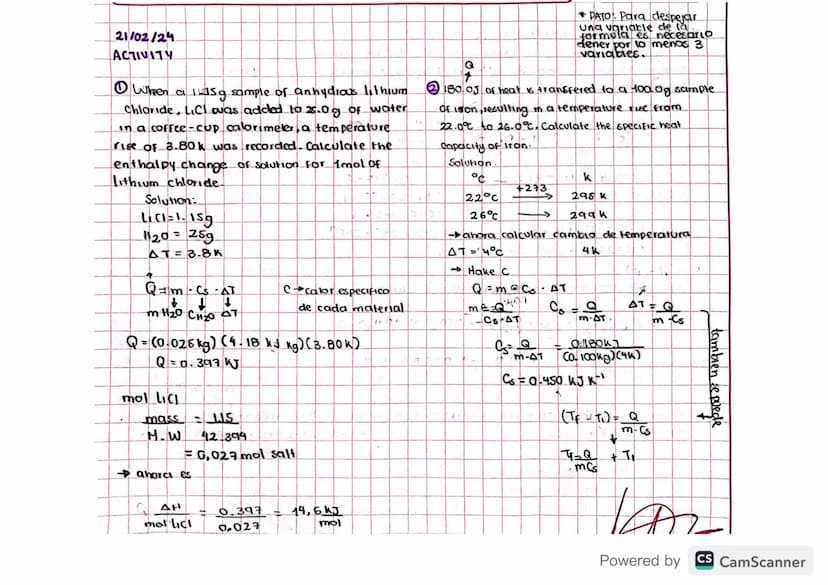 21/02/24
ACTIVITY
* DATO: Para despejar
una variable de la
formula es necesario
dener por lo menos 3
variables.
① When a 1.15g sample of anhydras lithium
chloride, LiCl was added to 25.0g of water
in a coffee-cup calorimeter, a temperature
rise of 3.80K was recorded. Calculate the
enthalpy change of solution for 1mol of
lithium chloride.
Solution:
LiCl=1.15g
H2O = 25g
ΔT = 3.8K
Q=m · Cs · ΔT
mH2O CH2O ΔT
C→calor especifico
de cada material
Q=(0.025kg)(4.18 kJ kg)(3.80K)
Q=0.397 KJ
mol LiCl
mass = 1.15
M.W 42.394
= 0,027mol salt
→ ahora es
ΔH = 0.397 = 14,6 kJ
mol LiCl 0,027 mol
Q
② 180.0J of heat is transfered to a 100.0g sample
of iron, resulting in a temperature rise from
22.0°C to 26.0°C. Calculate the specific heat
capacity of iron.
Solution.
°C K
22°C +273 295K
26°C → 299K
→ahora calcular cambio de temperatura
ΔT = 4°C 4K
→ Hake C
Q=m Cs · ΔT
m = Q
Cs·ΔT
Cs = Q
m·ΔT
ΔT = Q
m·Cs
Cs = Q = 0.180KJ
m·ΔT (0.100kg)(4K)
Cs = 0.450 KJ K⁻¹
tambien se puede
(TF - T1) = Q
m·Cs
TF=Q + T1
mCs
Powered by CS CamScanner